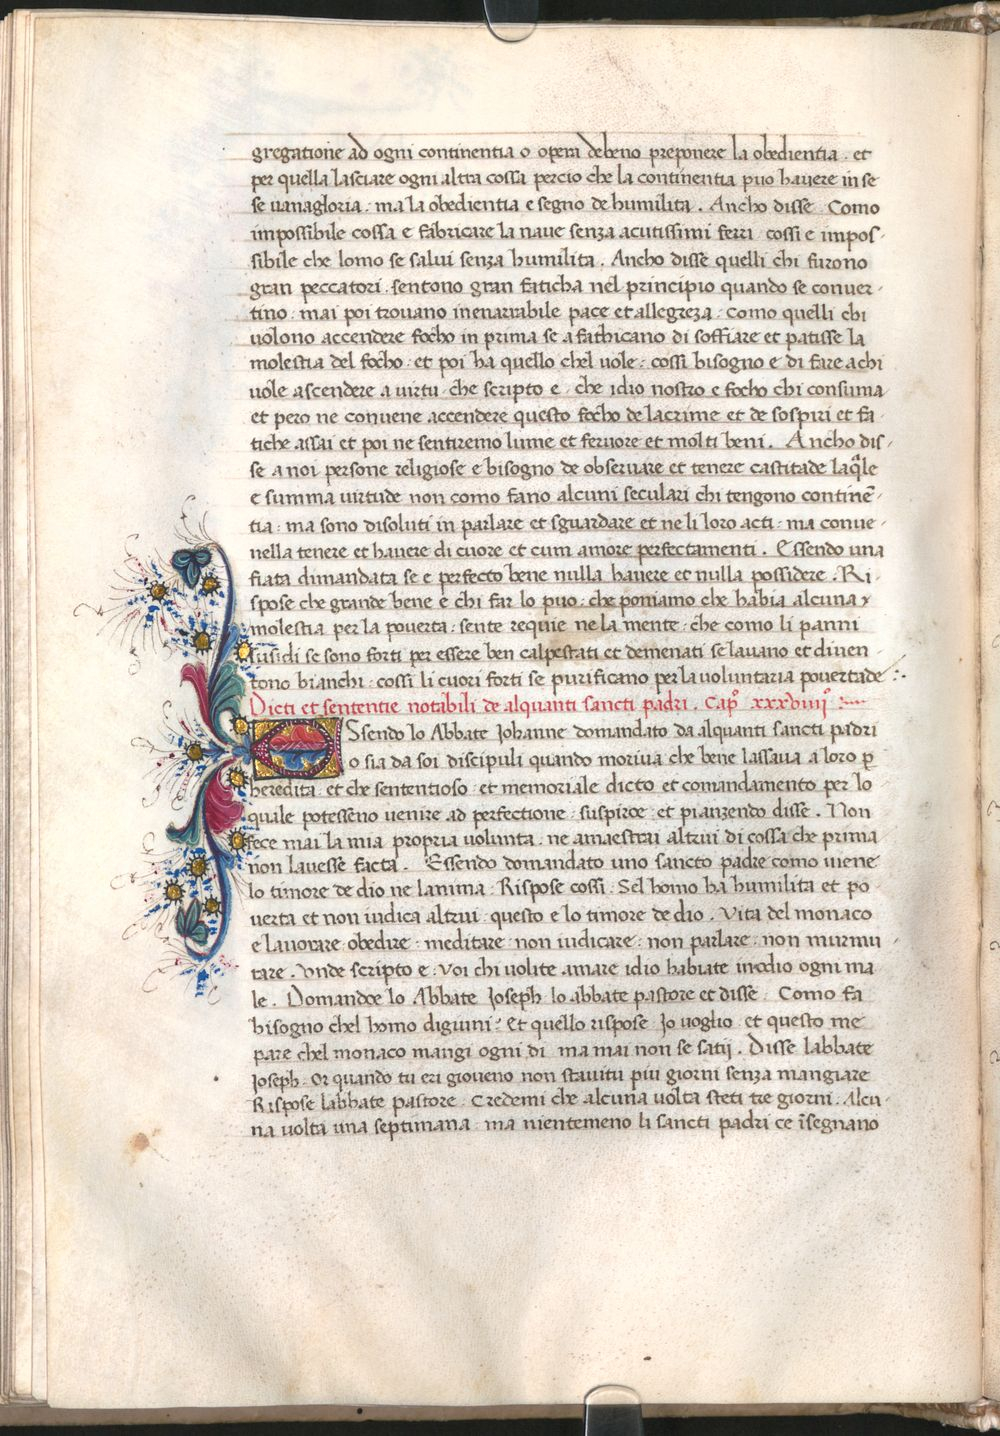 gregatione ad ogni continentia o opera debeno preponere la obedientia . et
per quella lasciare ogni altra cossa percio che la continentia puo havere in se
se vanagloria : ma la obedientia e segno de humilita . Ancho disse . Como
impossibile cossa e fabricare la nave senza acutissimi ferri . cossi e impos-
sibile che lomo se salvi senza humilita . Ancho disse quelli chi furono
gran peccatori . sentono gran faticha nel principio quando se conver-
tino . mai poi trovano inenarrabile pace et allegreza . Como quelli chi
volono accendere focho in prima se afathicano di soffiare et patisse la
molestia del focho . et poi ha quello chel vole : cossi bisogno e di fare a chi
vole ascendere a virtu . che scripto e . che idio nostro e focho chi consuma
et pero ne convene accendere questo focho de lacrime et de sospiri et fa-
tiche assai et poi ne sentiremo lume et fervore et molti beni . Ancho dis-
se a noi persone religiose e bisogno de observare et tenere castitade laq̃le
e summa virtude non como fano alcuni seculari chi tengono continẽ-
tia : ma sono disoluti in parlare et sguardare et ne li loro acti : ma conve-
nella tenere et havere di cuore et cum amore perfectamenti . Essendo una
fiata dimandata se e perfecto bene nulla havere et nulla possidere . Ri-
spose che grande bene e chi far lo puo : che poniamo che habia alcuna
molestia per la poverta : sente requie ne la mente : che como li panni
susidi se sono forti per essere ben calpestati et demenati se lavano et diven-
tono bianchi . cossi li cuori forti se purificano per la voluntaria povertade :.
Dicti et sententie notabili de alquanti sancti padri . Capº xxxviiiiº :~
ESsendo lo Abbate Johanne domandato da alquanti sancti padri
o sia da soi discipuli quando moriva che bene lassava a loro p̲
heredita . et che sententioso . et memoriale dicto et comandamento per lo
quale potesseno venire ad perfectione . suspiroe . et pianzendo disse . Non
fece mai la mia propria volunta . ne amaestrai altrui di cossa che prima
non lavesse facta . Essendo domandato uno sancto padre como viene
lo timore de dio ne lanima . Rispose cossi . Sel homo ha humilita et po-
verta et non iudica altrui . questo e lo timore de dio . Vita del monaco
e lavorare . obedire : meditare . non iudicare . non parlare . non murmu-
rare . Vnde scripto e . Voi chi volite amare idio habiate in odio ogni ma
le . Domandoe lo Abbate Joseph . lo abbate pastore et disse . Como fa
bisogno chel homo digiuni ? Et quello rispose . Jo voglio . et questo me
pare chel monaco mangi ogni di . ma mai non se satij . Disse labbate
Joseph . Or quando tu eri gioveno non stavitu piu giorni senza mangiare
Rispose labbate pastore . Credemi che alcuna volta steti tre giorni . Alcu-
na volta una septimana . ma nientemeno li sancti padri ce ĩsegnano